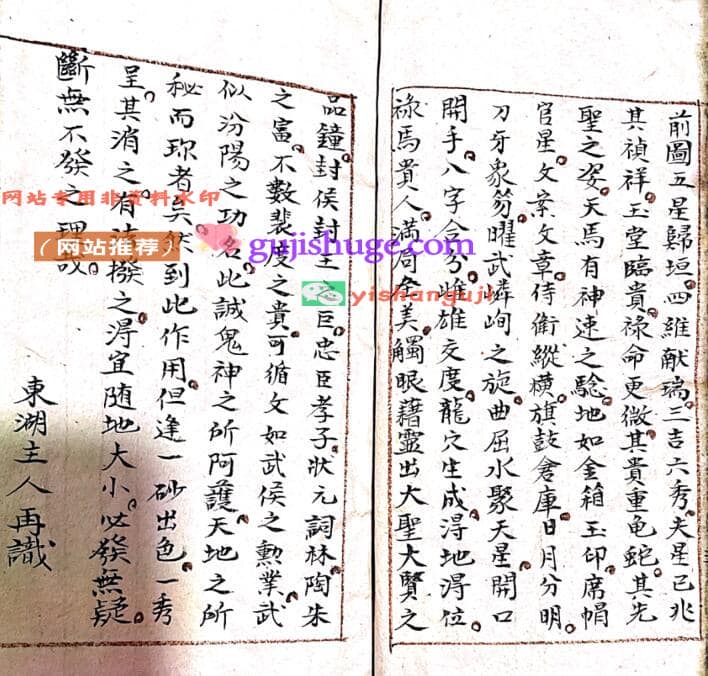 前圖五星歸垣四維献瑞三吉六秀夫星已兆
其禎祥玉堂臨貴祿命更徵其貴重龟蛇其先
聖之姿天馬有神速之驗地如金箱玉印席帽
官星文案文章侍衛縱橫旗鼓倉庫日月分明
刀牙象笏曜武嶙峋之旋曲屈水聚天星開口
開手八字合分雌雄交度龍穴生成淂地淂位
祿馬貴人滿局全美觸眼藉靈出大聖大賢之
品鐘封侯封王之臣忠臣孝子狀元詞林陶朱
之富不數裴度之貴可循文如武侯之勲業武
似汾陽之功名此誠鬼神之所阿護天地之所
秘而珎者矣然到此作用但逢一砂出色一秀
呈其消之有法撥之淂宜随地大小必發無疑
斷無不發之理哉
東湖主人再識
网站专用非资料水印
（网站推荐）
gujishuge.com
yishanguji